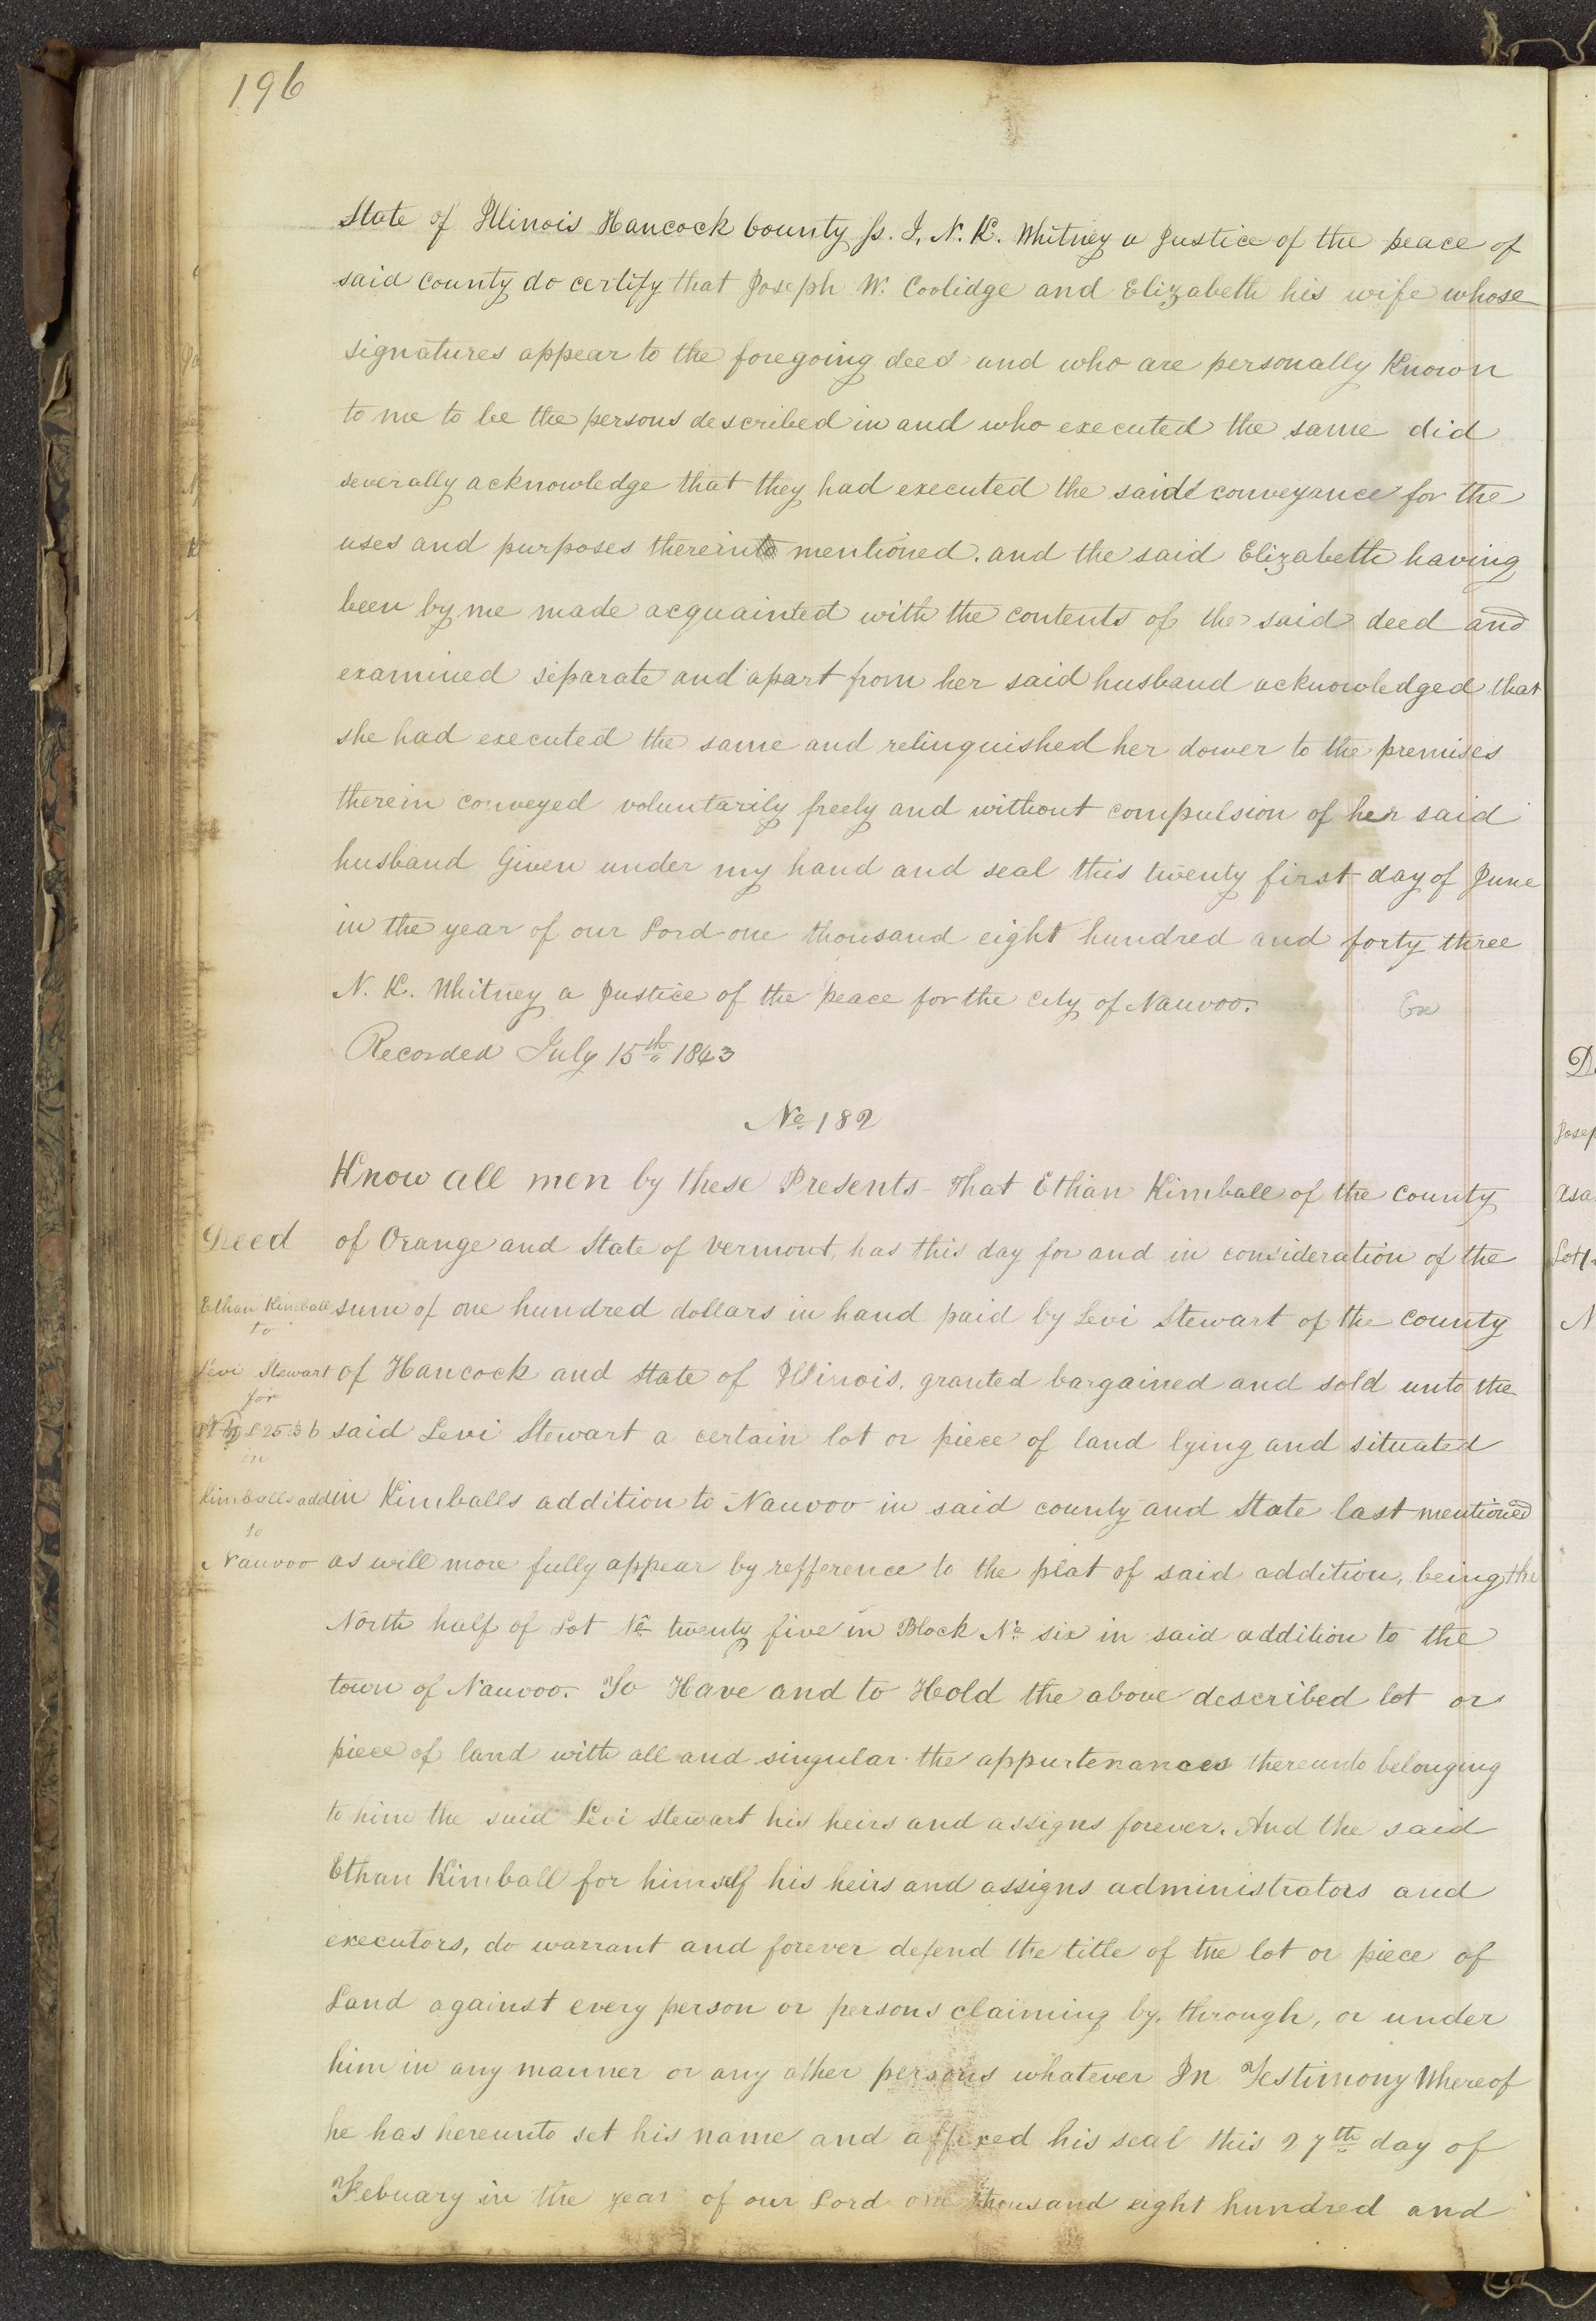 196
State of Illinois Hancock County ss. I, N. K. Whitney a Justice of the peace of
said county do certify that Joseph W. Coolidge and Elizabeth his wife whose
signatures appear to the foregoing deed and who are personally Known
to me to be the persons described in and who executed the same did
severally acknowledge that they had executed the said conveyance for the
uses and purposes therein mentioned. and the said Elizabeth having
been by me made acquainted with the contents of the said deed and
examined separate and apart from her said husband acknowledged that
she had executed the same and relinquished her dower to the premises
therein conveyed voluntarily freely and without compulsion of her said
husband Given under my hand and seal this twenty first day of June
in the year of our Lord one thousand eight hundred and forty three
N. K. Whitney a Justice of the peace for the city of Nauvoo.
Ex
Recorded July 15th 1843
No 182
Know all men by these Presents That Ethan Kimball of the County
Deed
of Orange and State of Vermont, has this day for and in consideration of the
Ethan Kimball
sum of one hundred dollars in hand paid by Levi Stewart of the County
to
Levi Stewart
of Hancock and State of Illinois, granted bargained and sold unto the
for
L 25 B 6
said Levi Stewart a certain lot or piece of land lying and situated
in
Kimballs add
in Kimballs addition to Nauvoo in said county and State last mentioned
to
Nauvoo
as will more fully appear by refference to the plat of said addition, being the
North half of Lot No twenty five in Block No six in said addition to the
town of Nauvoo. To Have and to Hold the above described lot or
piece of land with all and singular the appurtenances thereunto belonging
to him the said Levi Stewart his heirs and assigns forever. And the said
Ethan Kimball for himself his heirs and assigns administrators and
executors, do warrant and forever defend the title of the lot or piece of
Land against every person or persons claiming by, through, or under
him in any manner or any other persons whatever In Testimony Whereof
he has hereunto set his name and affixed his seal this 27th day of
Febuary in the year of our Lord one thousand eight hundred and